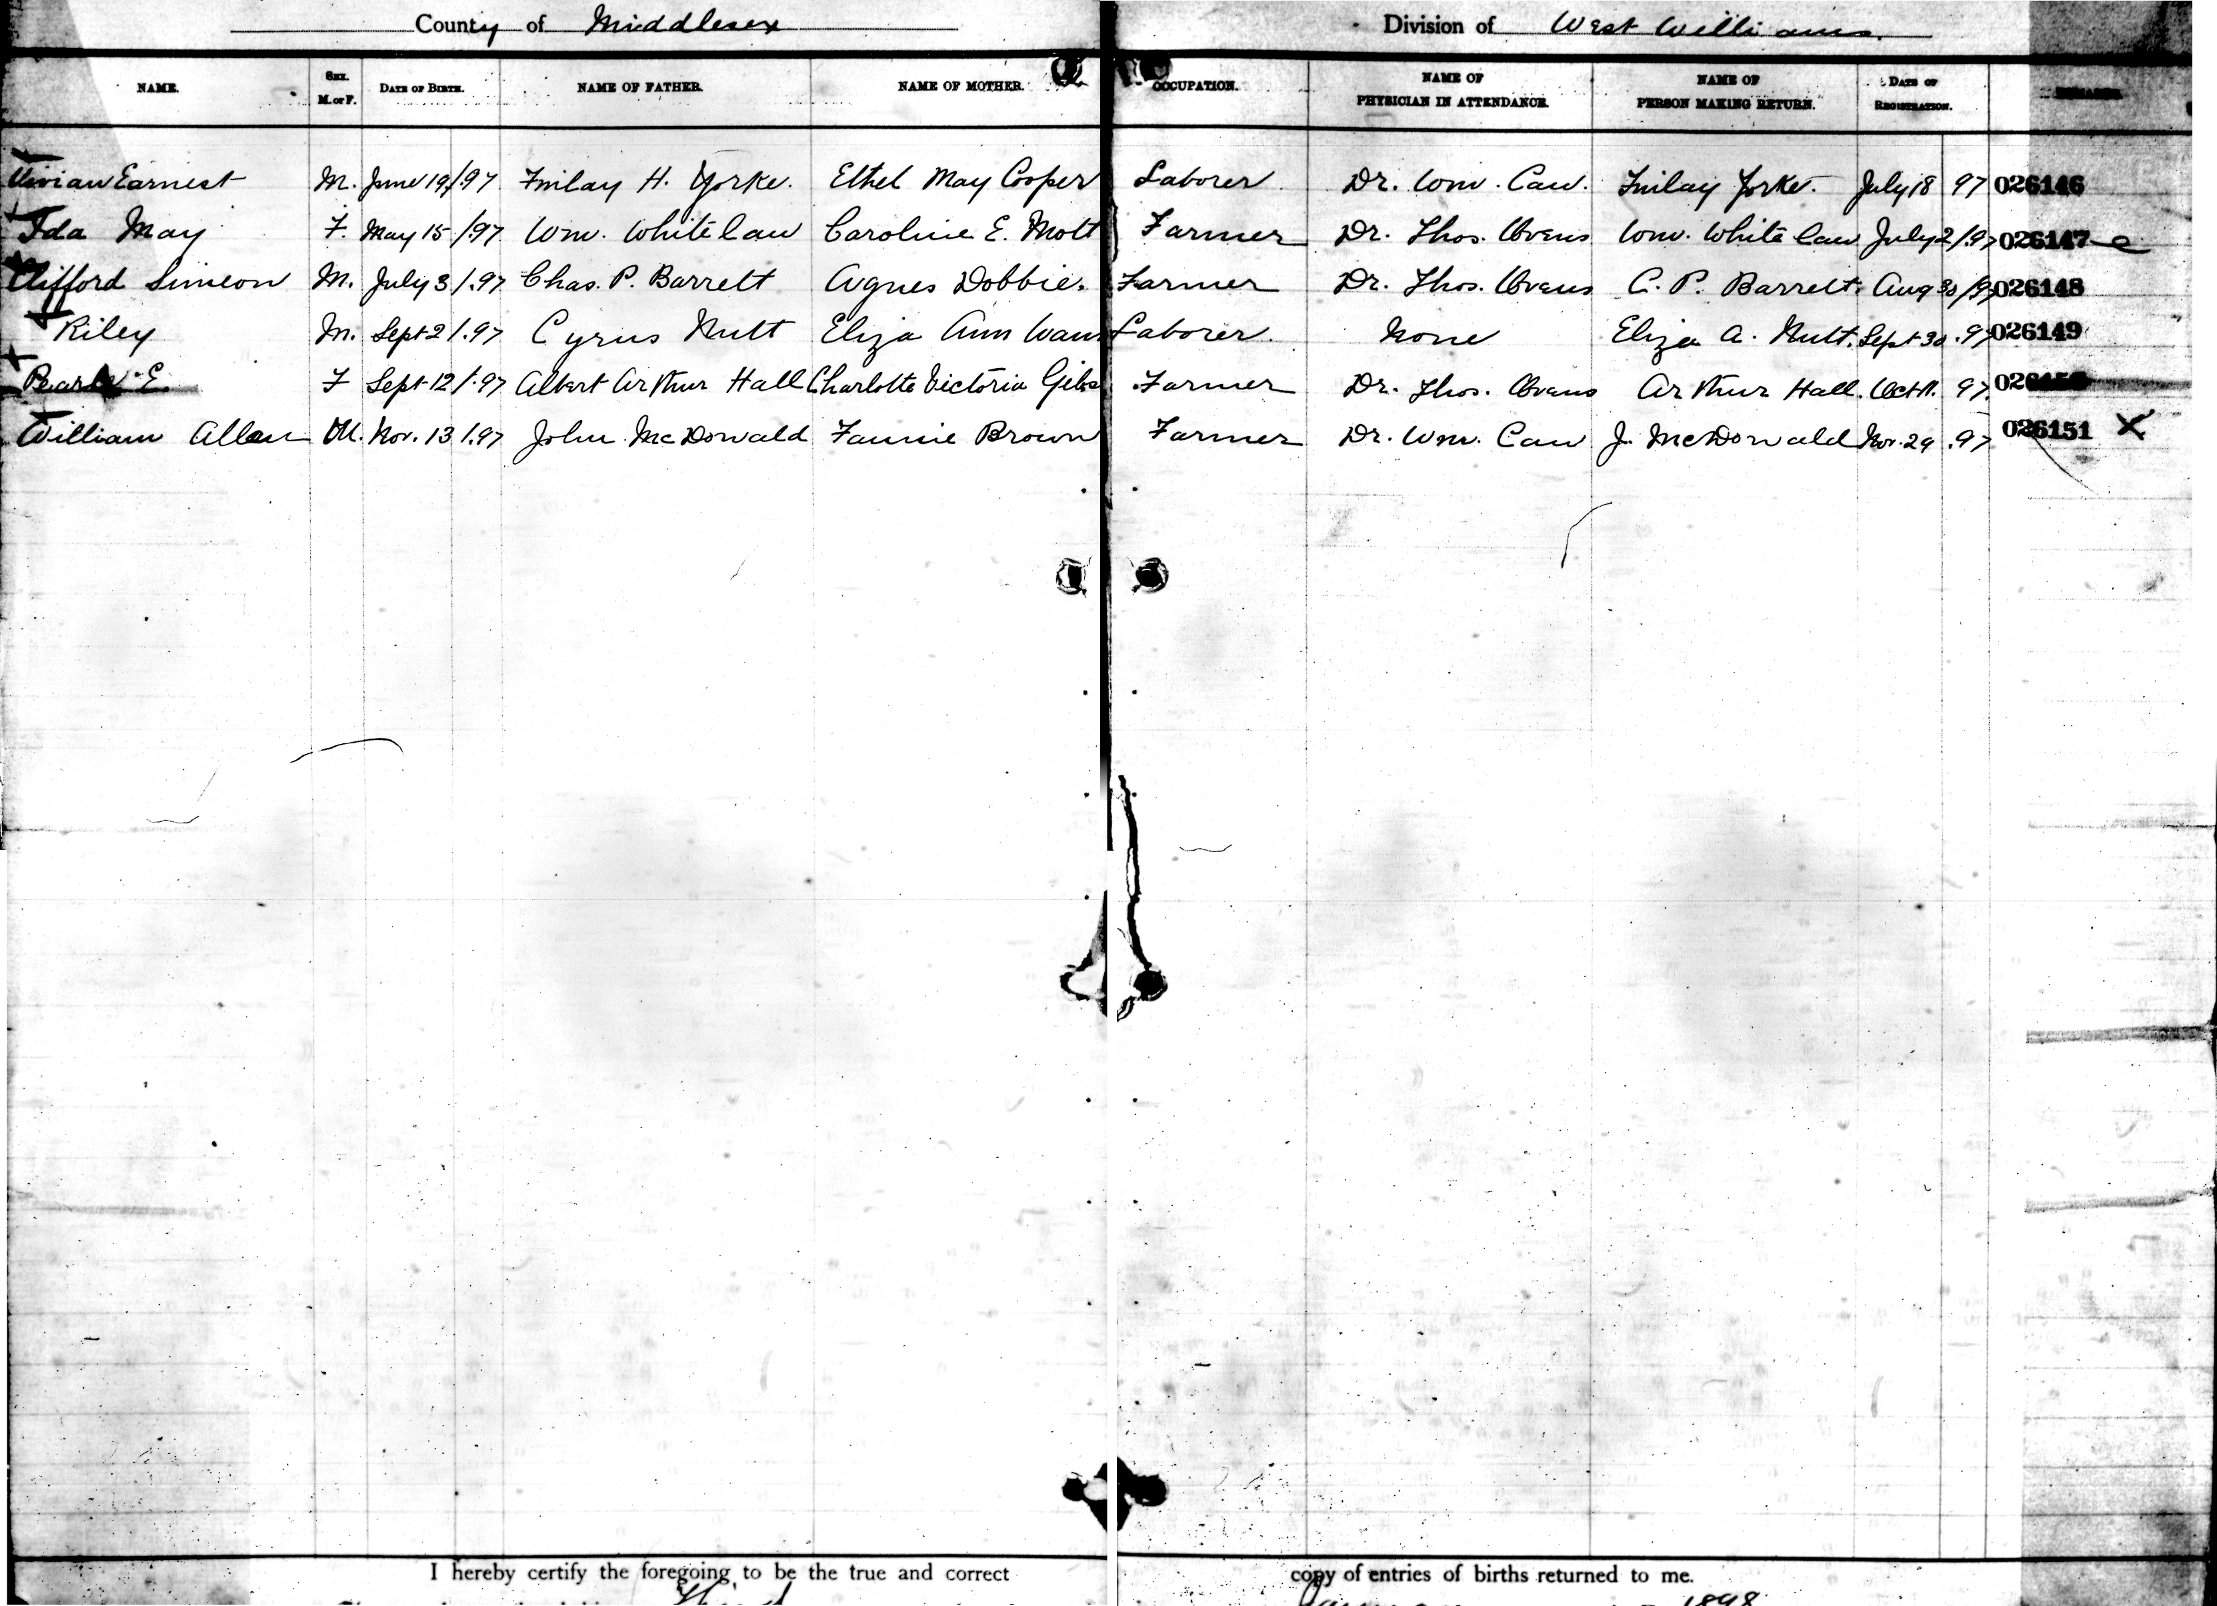 County of Middlesex Division of West Williams.
NAME. SEX. M. or F. DATE OF BIRTH. NAME OF FATHER. NAME OF MOTHER. OCCUPATION. NAME OF PHYSICIAN IN ATTENDANCE. NAME OF PERSON MAKING RETURN. DATE OF REGISTRATION. REMARKS.
Vivian Earnest M. June 19/.97 Finlay H. Yorke. Ethel May Cooper Laborer Dr. Wm. Caw. Finlay Yorke. July 18 97 026146
Ida May F. May 15/.97 Wm. Whitelaw Caroline E. Mott Farmer Dr. Thos. Ovens Wm. Whitelaw July 2/.97 026147
Clifford Simeon M. July 3/.97 Chas. P. Barrett Agnes Dobbie. Farmer Dr. Thos. Ovens C. P. Barrett. Aug 30/97 026148
Riley M. Sept 2/.97 Cyrus Nutt Eliza Ann Laborer. None Eliza A. Nutt. Sept 30 .97 026149
Pearl E. F Sept 12/.97 Albert Arthur Hall Charlotte Victoria Farmer Dr. Thos. Ovens Arthur Hall. Oct 11. 97
William Allen M. Nov. 13/.97 John McDonald Fannie Brown Farmer Dr. Wm. Caw J. McDonald Nov. 29 .97 026151 X
I hereby certify the foregoing to be the true and correct copy of entries of births returned to me.
1898